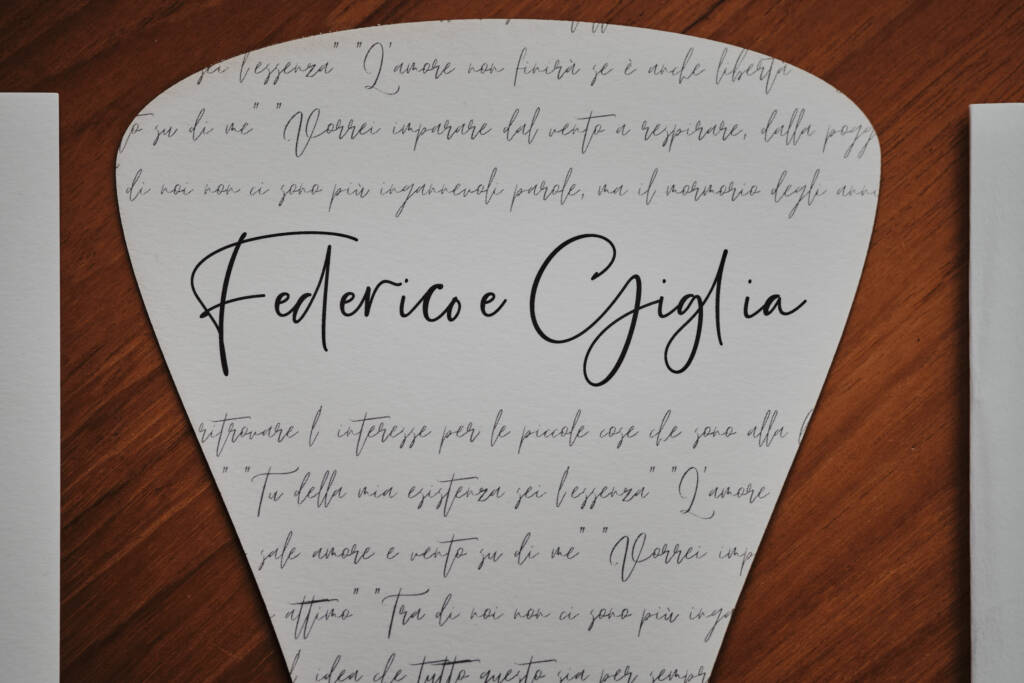 sei l'essenza" "L'amore non finirà se è anche libertà
to su di me" "Vorrei imparare dal vento a respirare, dalla pogg
di noi non ci sono più ingannevoli parole, ma il mormorio degli anni
Federico e Giglia
ritrovare l interesse per le piccole cose che sono alla
" "Tu della mia esistenza sei l'essenza" "L'amore
sale amore e vento su di me" "Vorrei imp
attimo" "Tra di noi non ci sono più inga
l idea che tutto questo sia per sempr